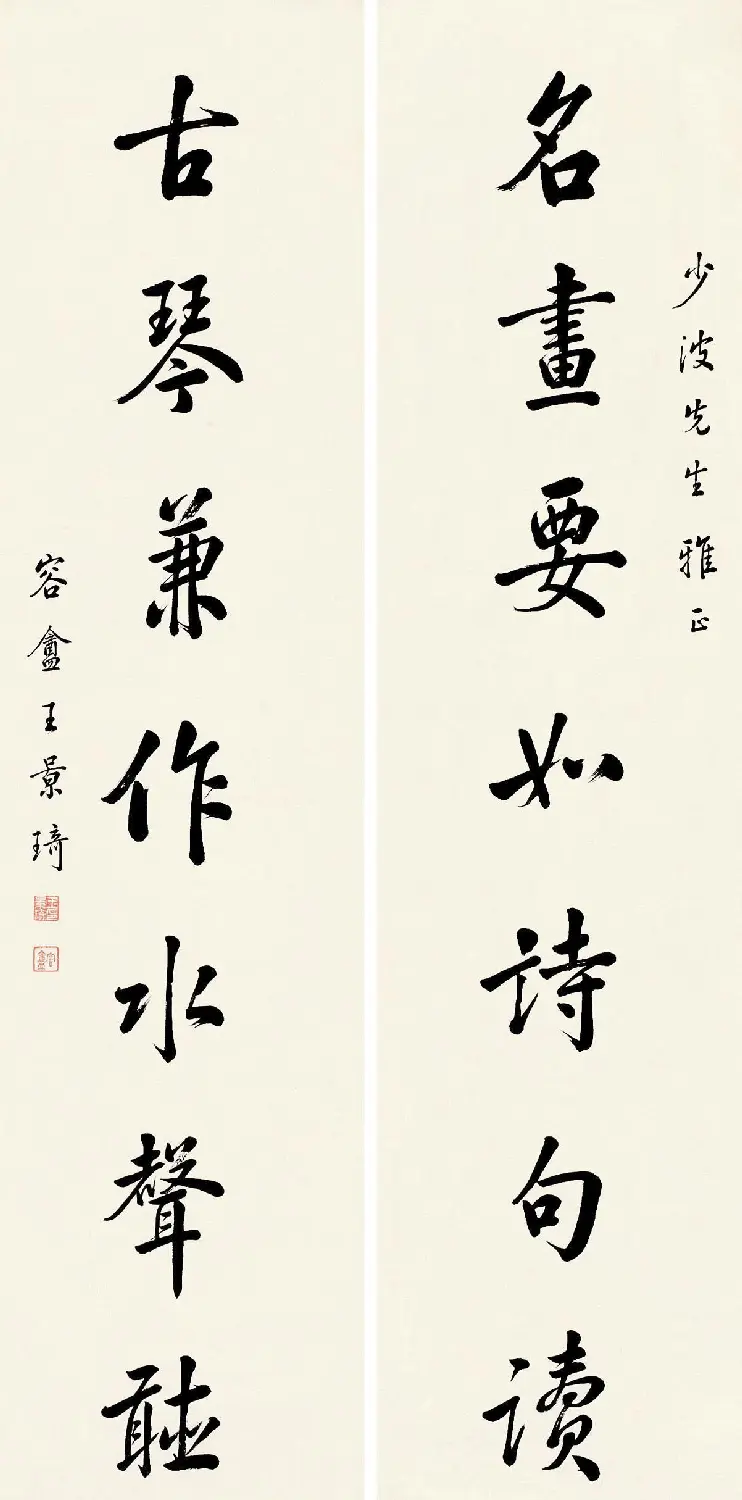 少波先生雅正
名畫要如詩句讀
古琴兼作水聲聽
容盦王景琦